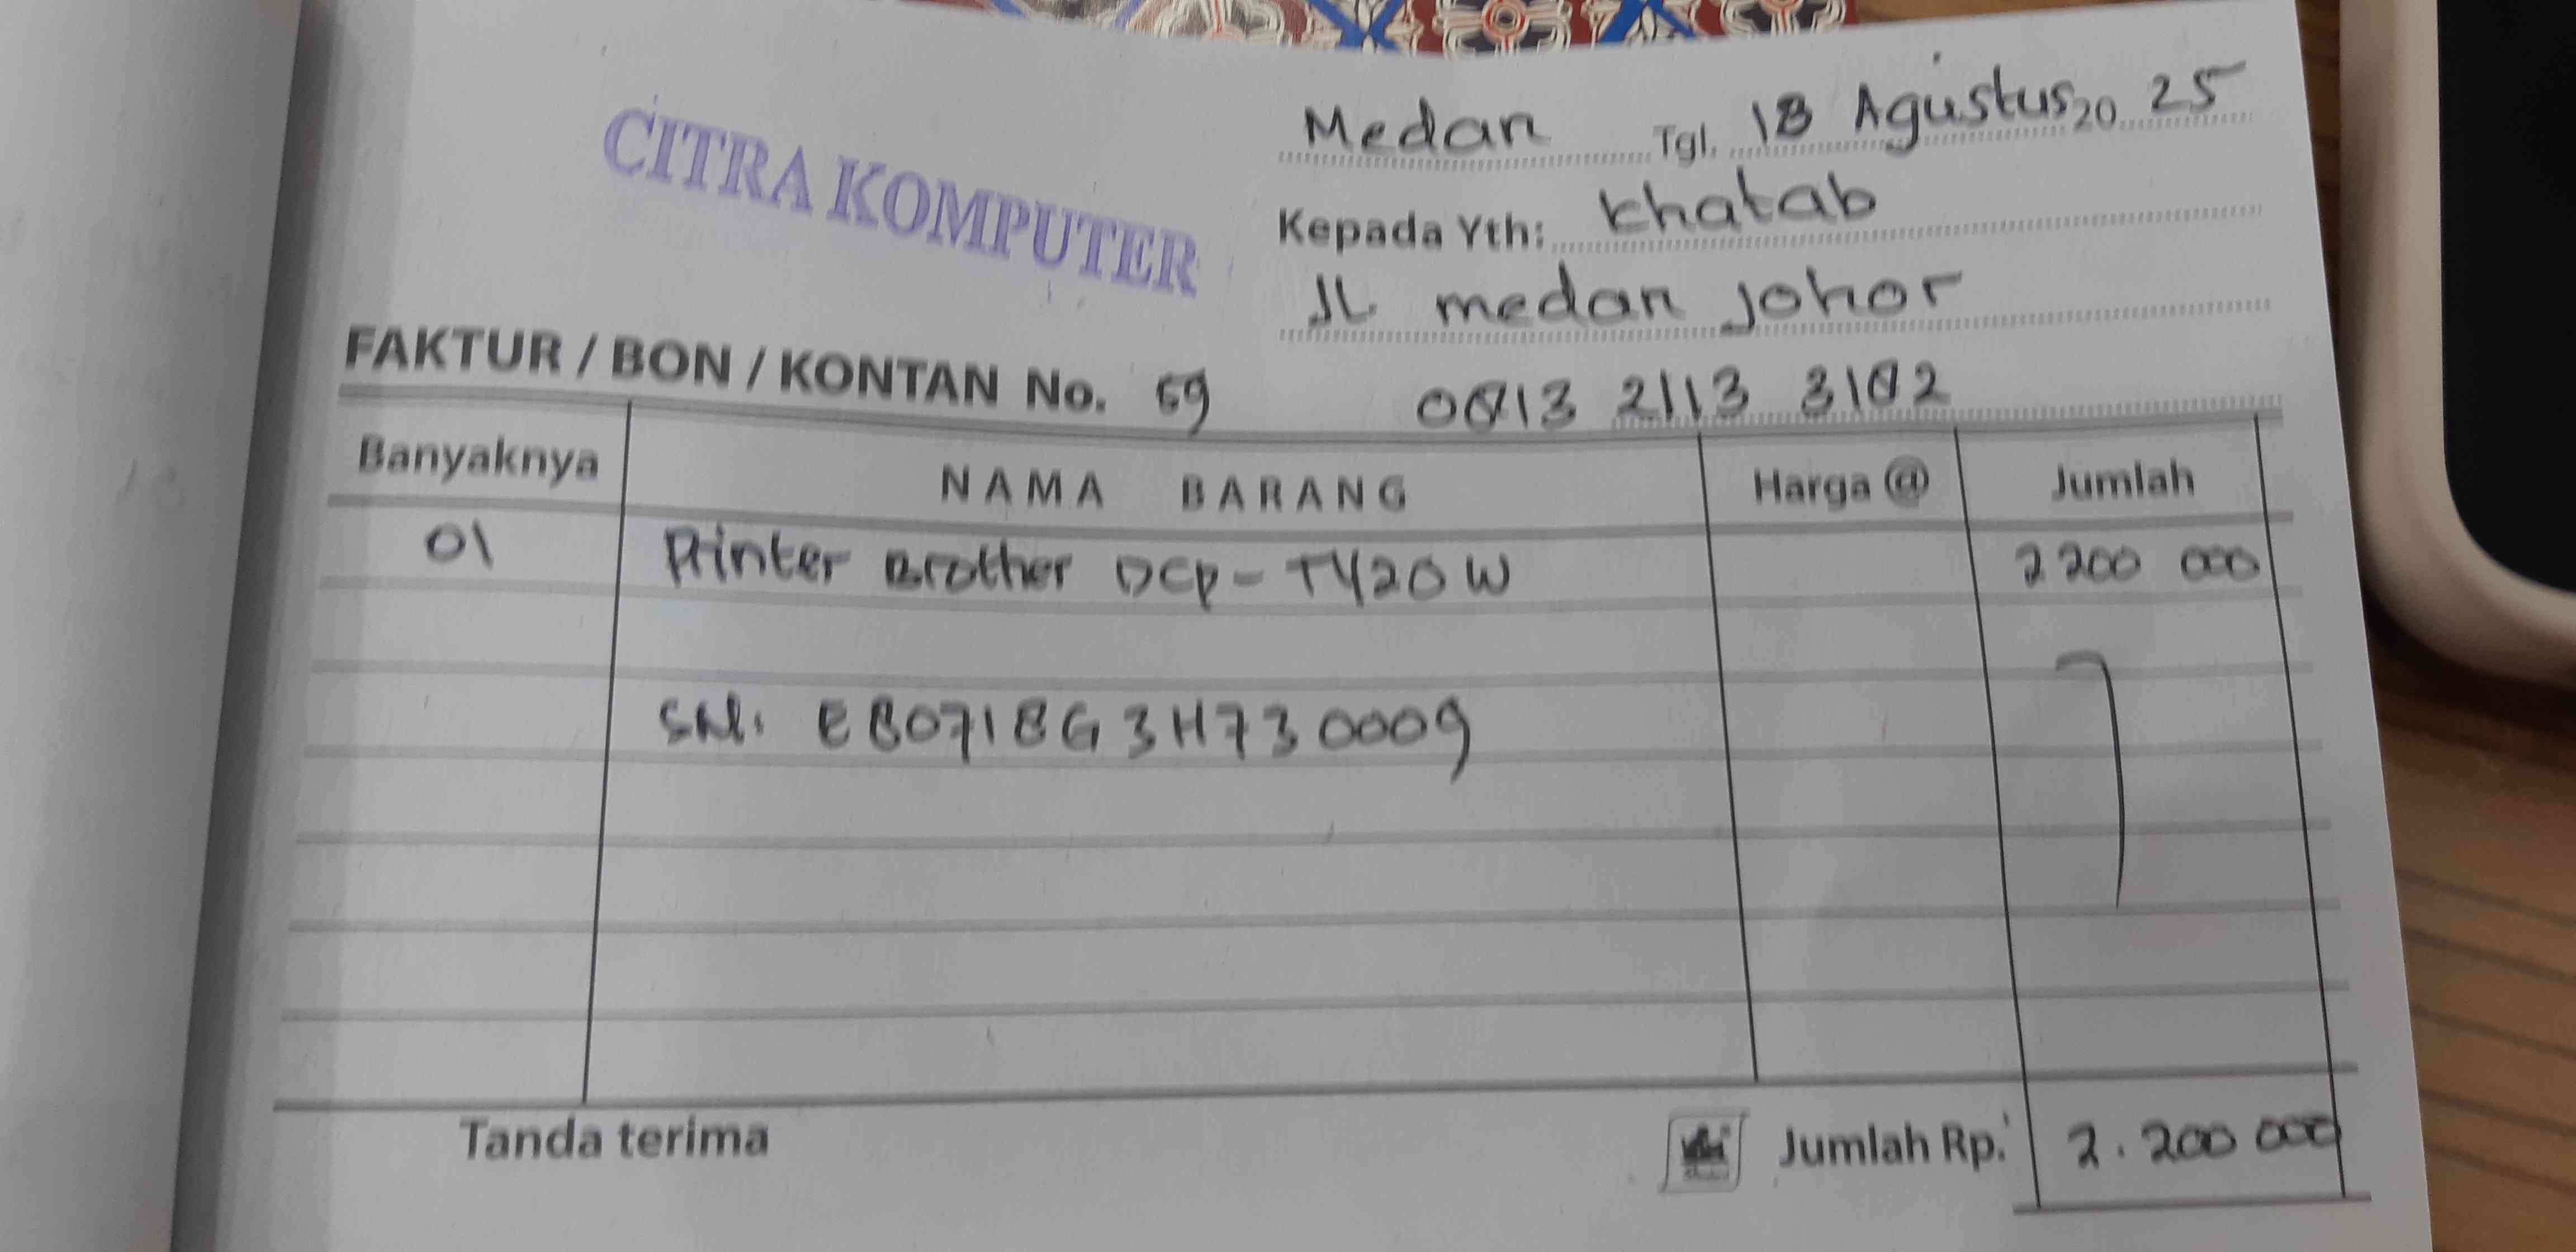 CITRA KOMPUTER
Medan Tgl. 18 Agustus 20 25
Kepada Yth: Khatab
JL medan johor
FAKTUR / BON / KONTAN No. 69
0813 2113 3182
Banyaknya NAMA BARANG Harga @ Jumlah
01 Printer Brother DCP-T420W 2 200 000
SN: E80718G3H730009
Tanda terima Jumlah Rp. 2.200 000